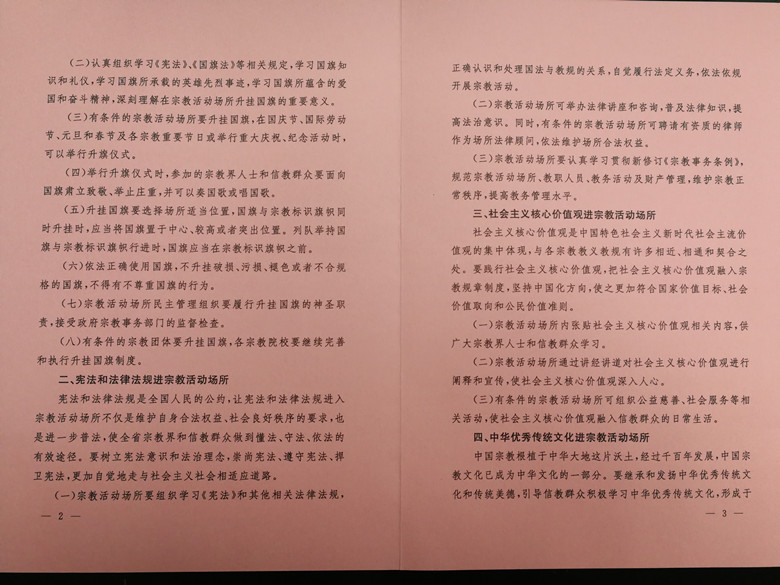 (二)认真组织学习《宪法》、《国旗法》等相关规定,学习国旗知
识和礼仪,学习国旗所承载的英雄先烈事迹,学习国旗所蕴含的爱
国和奋斗精神,深刻理解在宗教活动场所升挂国旗的重要意义。
(三)有条件的宗教活动场所要升挂国旗,在国庆节、国际劳动
节、元旦和春节及各宗教重要节日或举行重大庆祝、纪念活动时,
可以举行升旗仪式。
(四)举行升旗仪式时,参加的宗教界人士和信教群众要面向
国旗肃立致敬、举止庄重,并可以奏国歌或唱国歌。
(五)升挂国旗要选择场所适当位置,国旗与宗教标识旗帜同
时升挂时,应当将国旗置于中心、较高或者突出位置。列队举持国
旗与宗教标识旗帜行进时,国旗应当在宗教标识旗帜之前。
(六)依法正确使用国旗,不升挂破损、污损、褪色或者不合规
格的国旗,不得有不尊重国旗的行为。
(七)宗教活动场所民主管理组织要履行升挂国旗的神圣职
责,接受政府宗教事务部门的监督检查。
(八)有条件的宗教团体要升挂国旗,各宗教院校要继续完善
和执行升挂国旗制度。
二、宪法和法律法规进宗教活动场所
宪法和法律法规是全国人民的公约,让宪法和法律法规进入
宗教活动场所不仅是维护自身合法权益、社会良好秩序的要求,也
是进一步普法,使全省宗教界和信教群众做到懂法、守法、依法的
有效途径。要树立宪法意识和法治理念,崇尚宪法、遵守宪法、捍
卫宪法,更加自觉地走与社会主义社会相适应道路。
(一)宗教活动场所要组织学习《宪法》和其他相关法律法规,
— 2 —
正确认识和处理国法与教规的关系,自觉履行法定义务,依法依规
开展宗教活动。
(二)宗教活动场所可举办法律讲座和咨询,普及法律知识,提
高法治意识。同时,有条件的宗教活动场所可聘请有资质的律师
作为场所法律顾问,依法维护场所合法权益。
(三)宗教活动场所要认真学习贯彻新修订《宗教事务条例》,
规范宗教活动场所、教职人员、教务活动及财产管理,维护宗教正
常秩序,提高教务管理水平。
三、社会主义核心价值观进宗教活动场所
社会主义核心价值观是中国特色社会主义新时代社会主流价
值观的集中体现,与各宗教教义教规有许多相近、相通和契合之
处。要践行社会主义核心价值观,把社会主义核心价值观融入宗
教规章制度,坚持中国化方向,使之更加符合国家价值目标、社会
价值取向和公民价值准则。
(一)宗教活动场所内张贴社会主义核心价值观相关内容,供
广大宗教界人士和信教群众学习。
(二)宗教活动场所通过讲经讲道对社会主义核心价值观进行
阐释和宣传,使社会主义核心价值观深入人心。
(三)有条件的宗教活动场所可组织公益慈善、社会服务等相
关活动,使社会主义核心价值观融入信教群众的日常生活。
四、中华优秀传统文化进宗教活动场所
中国宗教根植于中华大地这片沃土,经过千百年发展,中国宗
教文化已成为中华文化的一部分。要继承和发扬中华优秀传统文
化和传统美德,引导信教群众积极学习中华优秀传统文化,形成于
— 3 —